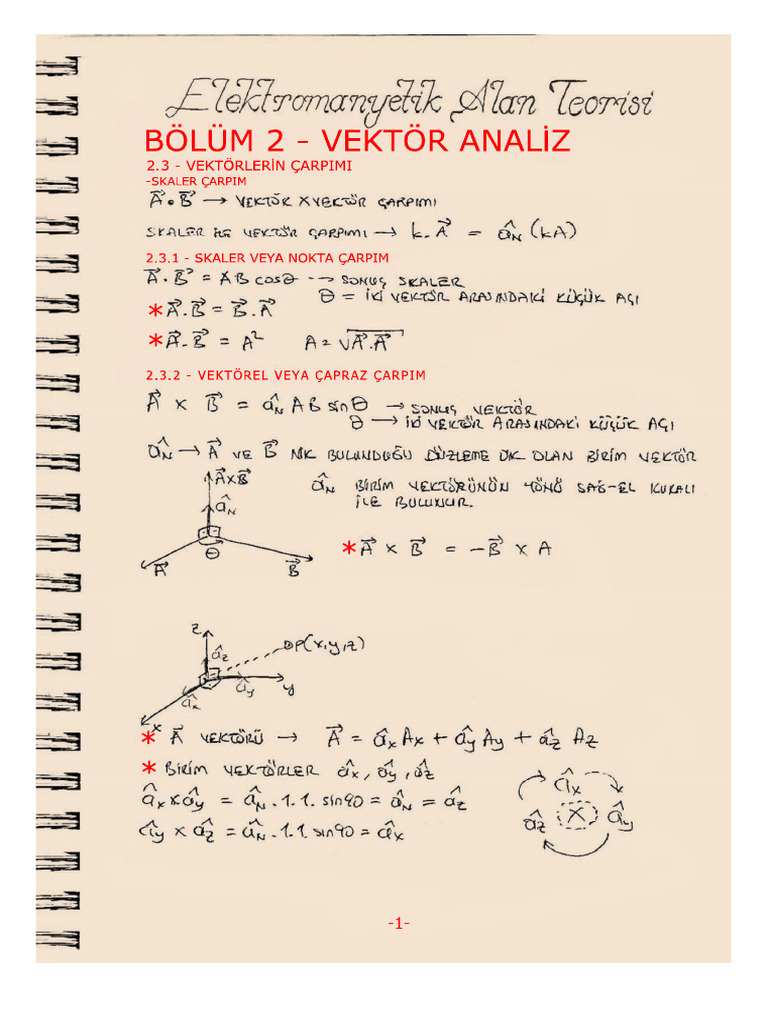 Elektromanyetik Alan Teorisi
BÖLÜM 2 - VEKTÖR ANALİZ
2.3 - VEKTÖRLERİN ÇARPIMI
-SKALER ÇARPIM
A⃗ • B⃗ → VEKTÖR X VEKTÖR ÇARPIMI
SKALER İLE VEKTÖR ÇARPIMI → k.A⃗ = âN (kA)
2.3.1 - SKALER VEYA NOKTA ÇARPIM
A⃗ . B⃗ = AB cosθ --→ SONUÇ SKALER
θ = İKİ VEKTÖR ARASINDAKİ KÜÇÜK AÇI
* A⃗ . B⃗ = B⃗ . A⃗
* A⃗ . B⃗ = A² A = √A⃗.A⃗
2.3.2 - VEKTÖREL VEYA ÇAPRAZ ÇARPIM
A⃗ x B⃗ = âN AB sinθ → SONUÇ VEKTÖR
θ → İKİ VEKTÖR ARASINDAKİ KÜÇÜK AÇI
âN → A⃗ VE B⃗ NİK BULUNDUĞU DÜZLEME DİK OLAN BİRİM VEKTÖR
A⃗xB⃗
âN
âN BİRİM VEKTÖRÜNÜN YÖNÜ SAĞ-EL KURALI
İLE BULUNUR.
θ
A⃗ B⃗
* A⃗ x B⃗ = -B⃗ x A
z
P(x,y,z)
âz
âx ây y
x
* A⃗ VEKTÖRÜ → A⃗ = âx Ax + ây Ay + âz Az
* BİRİM VEKTÖRLER âx, ây, âz
âx x ây = âN .1.1. sin90 = âN = âz
ây x âz = âN .1.1. sin90 = âx
âx
âz X ây
-1-